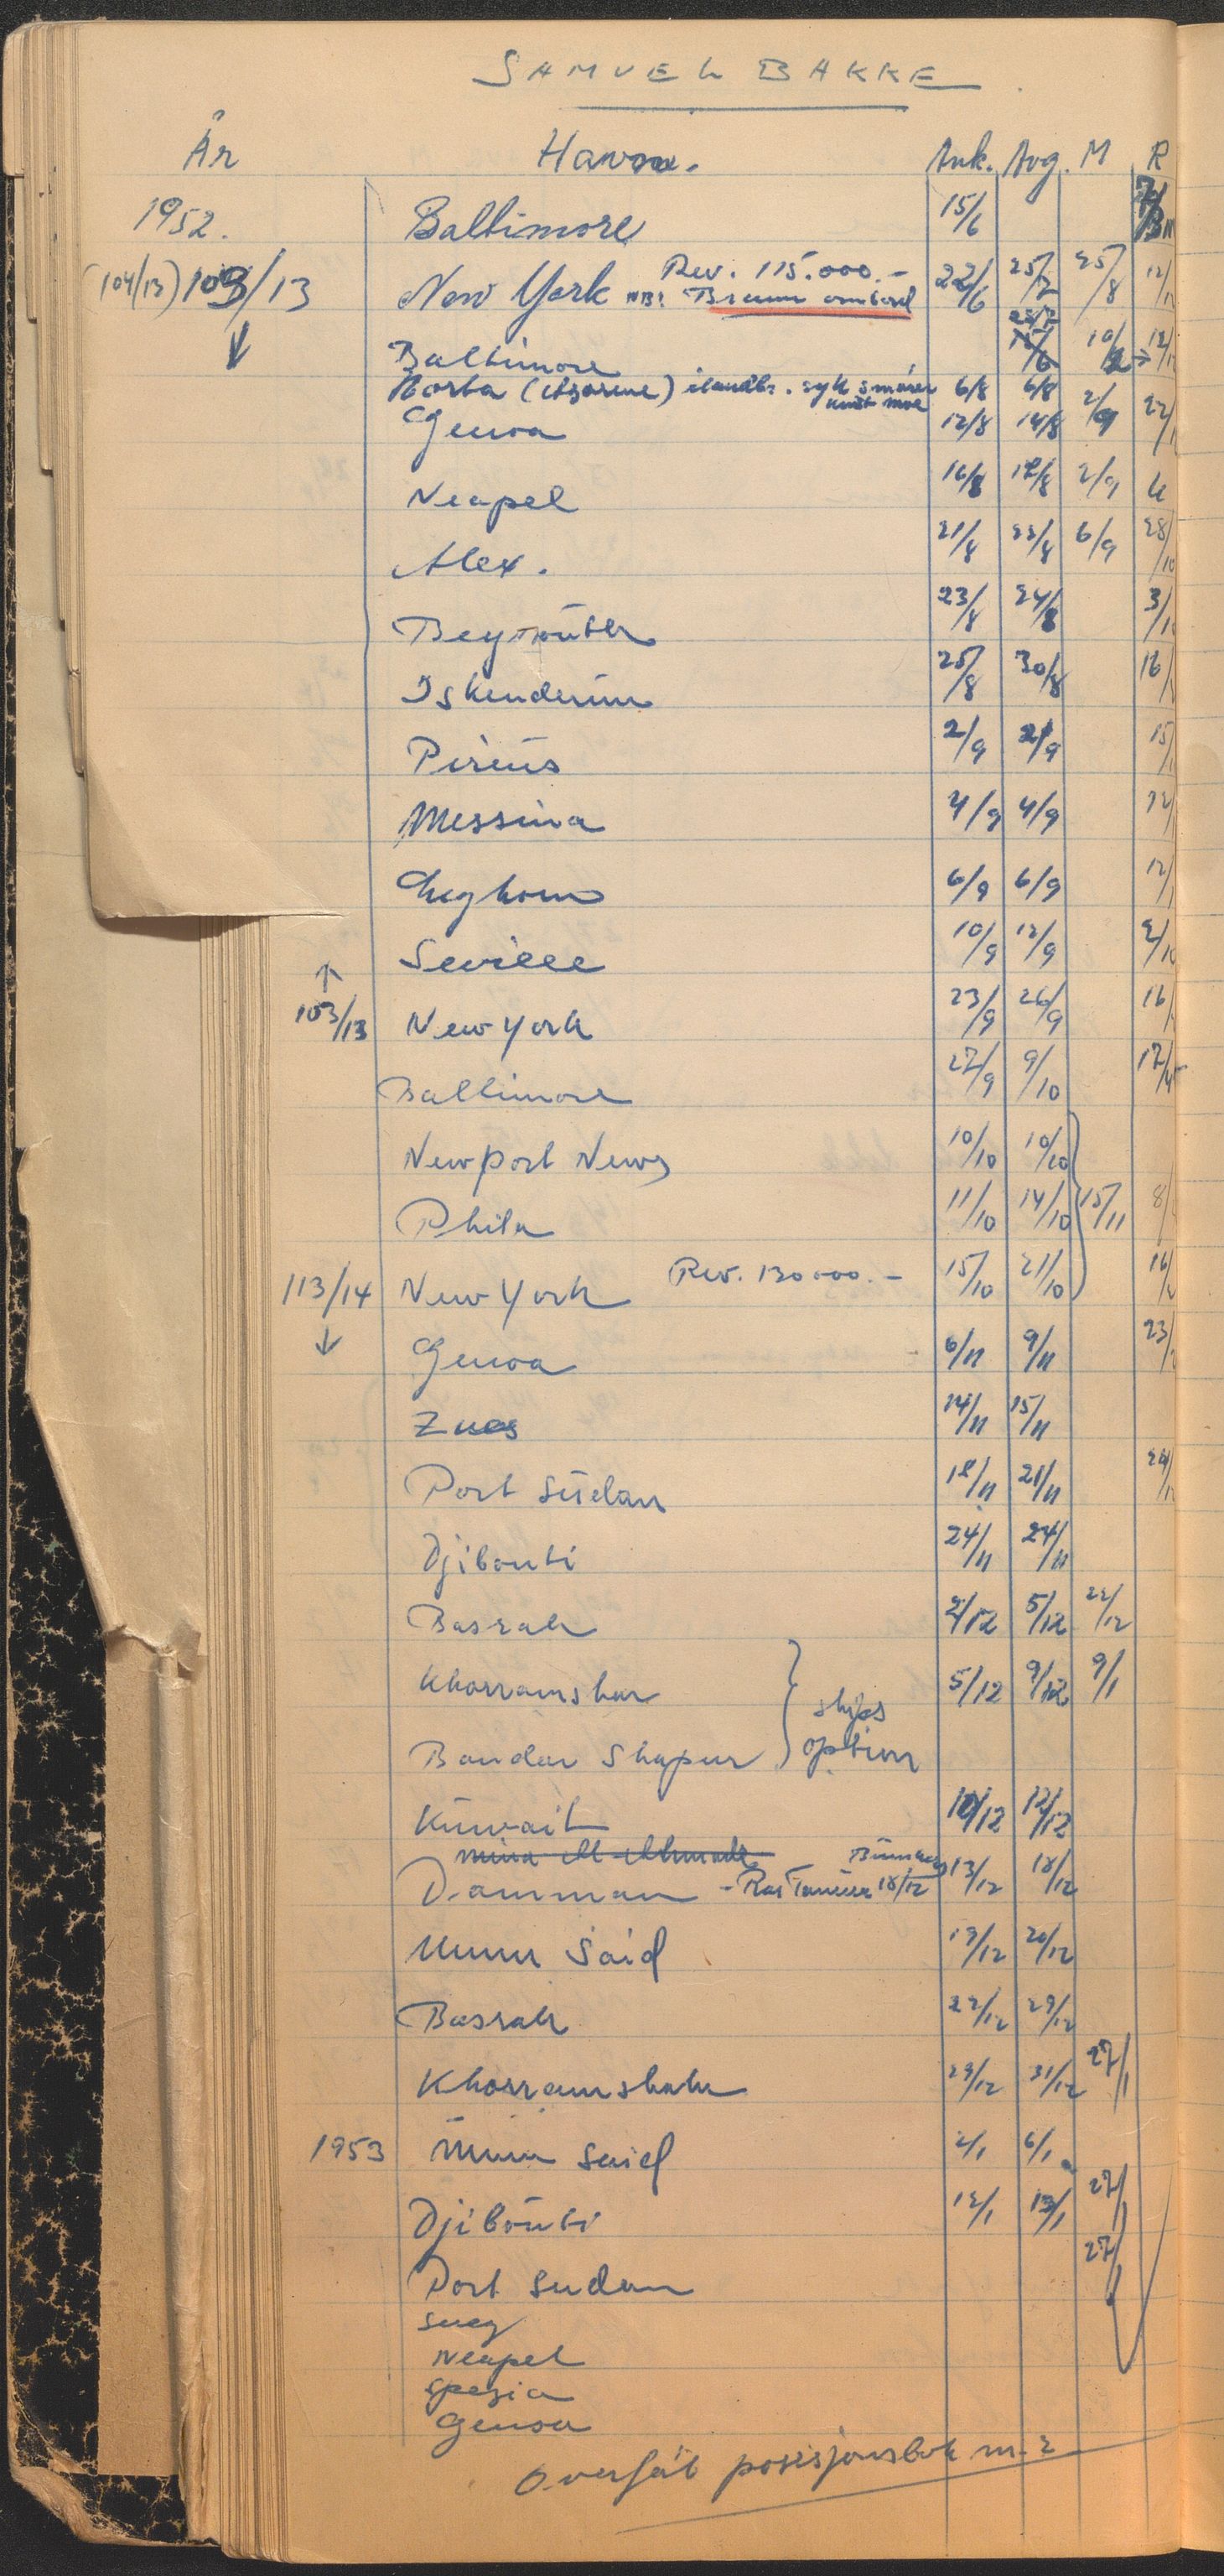 SAMUEL BAKKE
År Havn. Ank. Avg. M R
1952. Baltimore 15/6
Rev. 115.000.-
(104/13) 103/13 New York NB! Braun ombord 22/6 25/7 25/8
↓ Baltimore 10/
Horta (Azorene) syk smører 6/8 6/8
Genoa 12/8 14/8 2/9
Neapel 16/8 18/8 2/9
Alex. 21/8 22/8 6/9 28/10
Beyrouth 23/8 24/8
Iskenderun 25/8 30/8
Pireus 2/9 2/9
Messina 4/9 4/9
Leghorn 6/9 6/9
↑ Seville 10/9 12/9
103/13 New York 23/9 26/9
Baltimore 27/9 9/10
Newport News 10/10 10/10
Phila 11/10 14/10 15/11
113/14 New York Rev. 130000.- 15/10 21/10
↓ Genoa 6/11 9/11
Zues 14/11 15/11
Port Sudan 18/11 21/11
Djibouti 24/11 24/11
Basrah 2/12 5/12 22/12
Khorramshar 5/12 9/12 9/1
ships
Bandar Shapur option
Kuwait 10/12 12/12
Damman - Ras Tanura 18/12 13/12 18/12
Umm Said 19/12 20/12
Basrah 22/12 29/12
Khorramshahr 29/12 31/12 27/1
1953 Umm Said 2/1 6/1
Djibouti 12/1 13/1 27/1
Port Sudan 27/1
Suez
Neapel
Spezia
Genoa
Overført posisjonsbok nr. 2